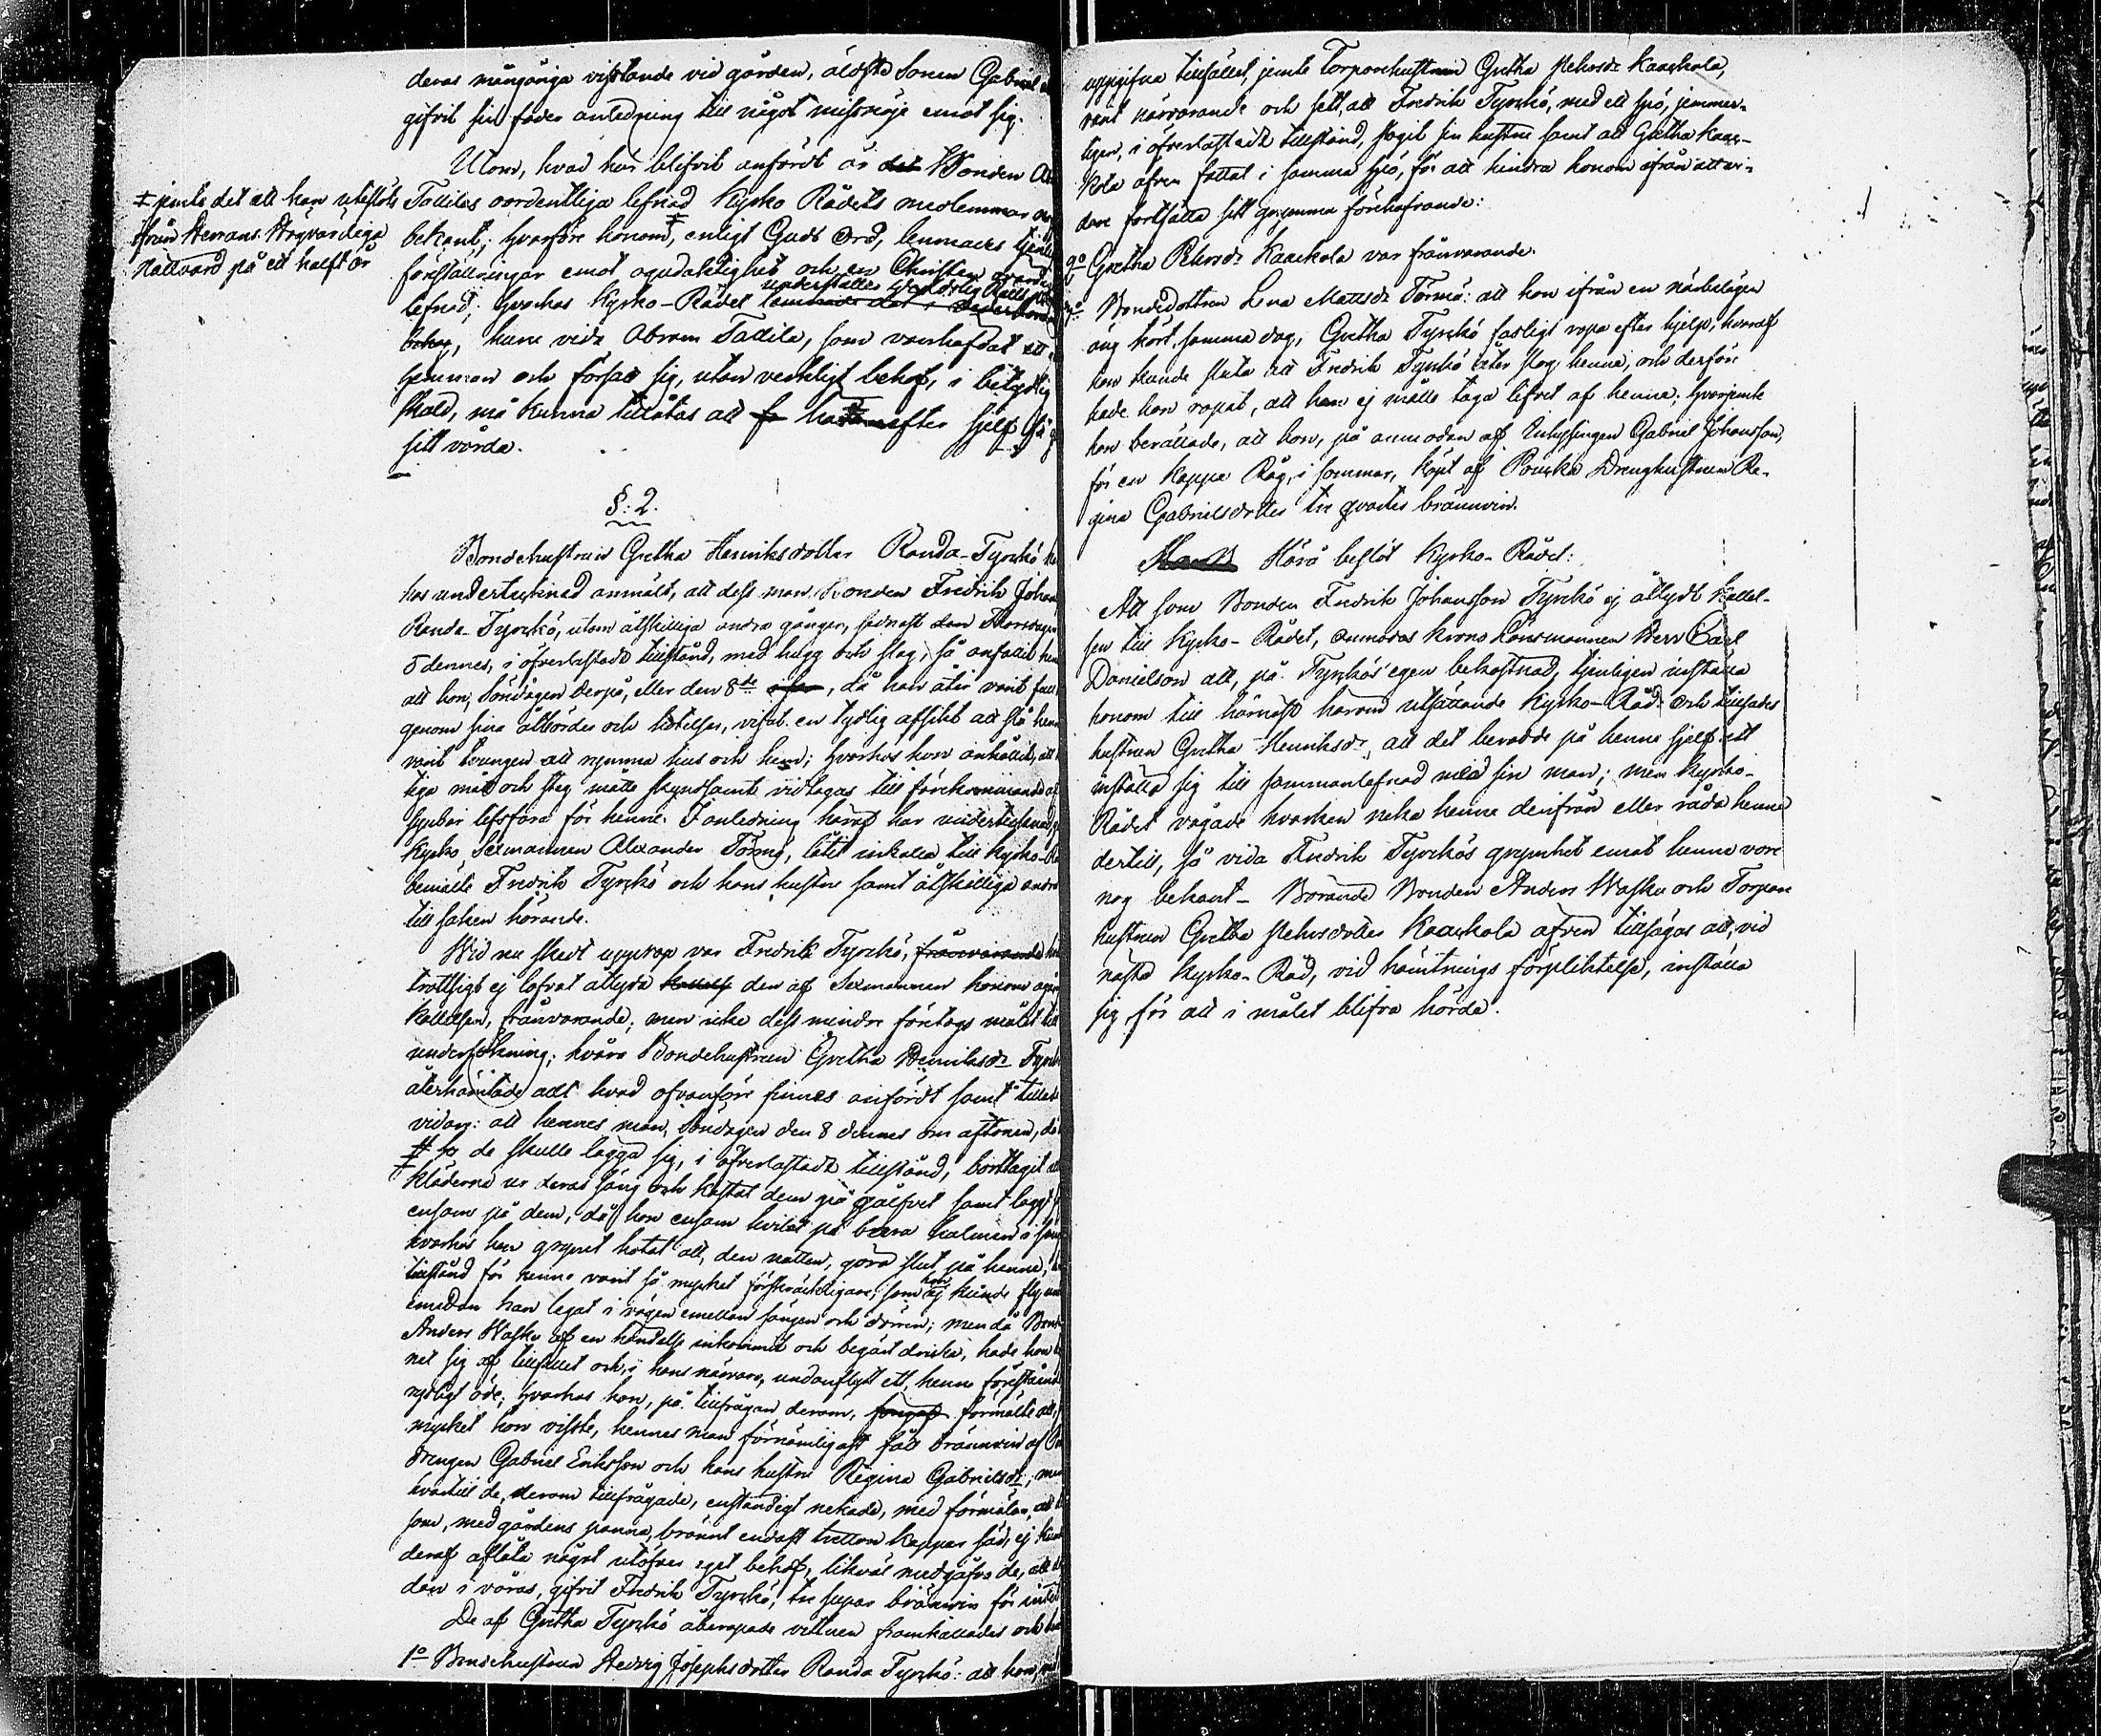 deras mångåriga vistande vid gården, äldste Sonen Gabriel
gifvit sin fader anledning till något missnöje emot sig.
Utom, hvad här blifvit anfördt är Bonden
‡ jemte det att han utestöts
ifrån Herrans Högvärdiga
Nattvard på ett halft år
Tallilas oordentliga lefnad Kyrko Rådets medlemmar
bekant; hvarföre honom ‡, enligt Guds Ord, lemnades
föreställningar emot ogudaktighet och en Christen
underställes Verldslig Rätts
lefnad; hvarhos Kyrko-Rådet
, huru vida Abram Tallila, som vanhäfdat
hemman och försatt sig, utan verkligt behof, i betydlig
skuld, må kunna tillåtas att hädanefter sjelf få
sitt vårda.
§: 2.
Bondehustrun Gretha Henriksdotter Randa-Tyrckö
hos undertecknad anmält, att dess man Bonden Fredrik
Randa-Tyrckö, utom åtskilliga andra gånger, sednast den
5 dennes, i öfverlastadt tillstånd, med hugg och slag, så anfallit
att hon, Söndagen derpå, eller den 8de, då han åter varit
genom sina åtbörder och hotelser, visat en tydlig afsikt att slå
varit tvungen att rymma hus och hem; hvarhos hon anhållit, att
tiga mått och steg måtte skyndsamt vidtagas till förekommande af
synbar lifsfara för henne. I anledning häraf har undertecknad,
Kyrko Sexmannen Alexander Törmä, låtit inkalla till Kyrko-
bemälte Fredrik Tyrckö och hans hustru samt åtskilliga andra
till saken hörande.
Wid nu skedt upprop var Fredrik Tyrckö, frånvarande
trottsigt ej lofvat åtlyda den af Sexmannen honom
kallelsen, frånvarande; men icke dess mindre företogs målet till
undersökning; hvårs Bondehustrun Gretha Henriksdr
återhämtade allt hvad ofvanföre finnes anfördt samt
vidare: att hennes man, Söndagen den 8 dennes om aftonen, då
de skulle lägga sig, i öfverlastadt tillstånd, borttagit
kläderna ur deras säng och kastat dem på gålfvet samt lagt
ensam på dem, då hon ensam hvilat på bara halmen i
hvarhos han grymt hotat att, den natten, göra slut på henne,
tillstånd för henne varit så mycket förskräckligare, som hon ej kunde fly
emedan han legat i vägen emellan sängen och dörren; men då
Anders Waska af en händelse inkommit och begärt dricka, hade hon
net sig af tillfället och, i hans närvaro, undanflytt ett, henne förestående
rysligt öde; hvarhos hon, på tillfrågan derom, förmälte att,
mycket hon visste, hennes man förnämligast fått bränvin af
drengen Gabriel Eriksson och hans hustru Regina Gabrielsdr;
hvartill de, derom tillfrågade, enständigt nekade, med förmälan, att
som, med gårdens panna, brännt endast tretton kappar säd, ej
deraf aflåta något utöfver eget behof, likväl medgåfvo de, att
den i våras, gifvit Fredrik Tyrckö, tre supar bränvin för
De af Gretha Tyrckö åberopade vittnen framkallades och
1o Bondehustrun Hedvig Josephsdotter Randa Tyrckö: att hon,
uppgifna tillfället, jemte Torparehustrun Gretha Kaackola,
varit närvarande och sett, att Fredrik Tyrckö, med ett spö, jemmer-
ligen, i öfverlastadt tillstånd, slagit sin hustru samt att Gretha Kaac-
kola äfven fattat i samma spö, för att hindra honom ifrån att vi-
dare fortsätta sitt grymma förehafvande:
Gretha Kaackola var frånvarande.
Bondedottren Lena Mattsdr Törmä: att hon ifrån en närbelägen
äng hört, samma dag, Gretha Tyrckö fasligt ropa efter hjelp; hvaraf
hon kunde sluta att Fredrik Tyrckö åter slog henne, och derför
hade hon ropat, att han ej måtte taga lifvet af henne; hvarjemte
hon berättade, att hon, på anmodan af Inhysingen Gabriel Johansson,
för en Kappe Råg, i sommar, köpt af Drenghustrun Re-
gina Gabrielsdotter tre qvarter bränvin.
Härå beslöt Kyrko-Rådet:
Att som Bonden Fredrik Johansson Tyrckö ej åtlydt kallel-
sen till Kyrko-Rådet, anmodas Krono Länsmannen Herr Carl
Danielson att, på Tyrckös egen bekostnad, tjenligen inställa
honom till härnäst härom utsättande Kyrko-Råd och tillsades
hustrun Gretha Henriksdr, att det berodde på henne sjelf att
inställa sig till sammanlefnad med sin man; men Kyrko-
Rådet vågade hvarken neka henne derifrån eller råda henne
dertill, så vida Fredrik Tyrckös grymhet emot henne vore
nog bekant – Börande Bonden Anders Waska och Torpare
hustrun Gretha Kaackola äfven tillsägas att, vid
nästa Kyrko-Råd, vid hämtnings förpliktelse, inställa
sig för att i målet blifva hörda.